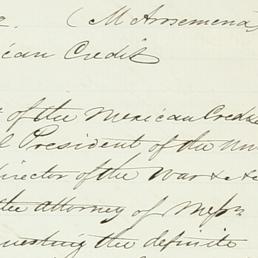 (M Arosemena,
ican Credit
of the Mexican Cred
President of the Un
director of the War &
the attorney of Messrs
questing the definite